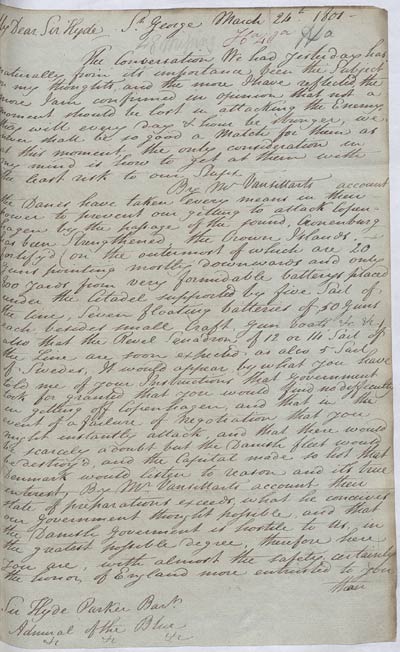 My Dear Sir Hyde, St. George March 24th 1801.
The conversation We had Yesterday has
naturally from its importance been the Subject
of my thoughts, and the more I have reflected the
more I am confirmed in opinion that not a
moment should be lost in attacking the Enemy
they will every day & hour be stronger, we
never shall be so good a Match for them as
at this moment, the only consideration in
my mind is how to get at them with
the least risk to our Ships.
By Mr. Vansittarts account
the Danes have taken every means in their
power to prevent our getting to attack Copen-
hagen by the passage of the sound, Cronenburg
has been Strengthened, the Crown Islands,
fortify'd (on the outermost of which are 20
Guns pointing mostly downwards and only
800 yards from very formidable batterys placed
under the Citadel supported by five Sail of
the line, Seven floating batteries of 50 Guns
each besides small Craft Gun boats &c. &c.
also that the Revel Squadron of 12 or 14 Sail of
the Line are soon expected, as also 5 Sail
of Swedes, It would appear by what you have
told me of your Instructions that Government
took for granted that you would find no difficulty
in getting off Copenhagen, and that in the
event of a failure of Negotiation that you
might instantly attack, and that there would
be scarcely a doubt but the Danish fleet would
be destroy'd, and the Capital made so hot that
Denmark would listen to reason and its true
interest, By Mr. Vansittarts account their
state of preparations exceeds what he conceives
our Government thought possible, and that
the Danish Government is hostile to us, in
the greatest possible degree, therefore here
you are, with almost the safety, certainly
the honor of England more entrusted to you
than
Sir Hyde Parker Bart.
Admiral of the Blue
&c &c &c